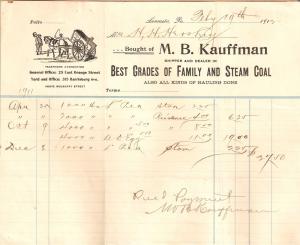 Folio
Lancaster, Pa., Feby 19th 190
Mr H. H. Hershey
...Bought of M. B. Kauffman
SHIPPER AND DEALER IN
BEST GRADES OF FAMILY AND STEAM COAL
ALSO ALL KINDS OF HAULING DONE
TELEPHONE CONNECTION
General Office: 25 East Orange Street
Yard and Office: 315 Harrisburg Ave.
ABOVE MULBERRY STREET
Terms
1911
Apr 1000 Pea 2.25
" 2000 " " 4.00 6.25
Oct 9 " " " 8.00
" 4000 " 11.00 19.00
Dec 1000 " Pea 2.25
27.50
Rec'd Payment
M B Kauffman